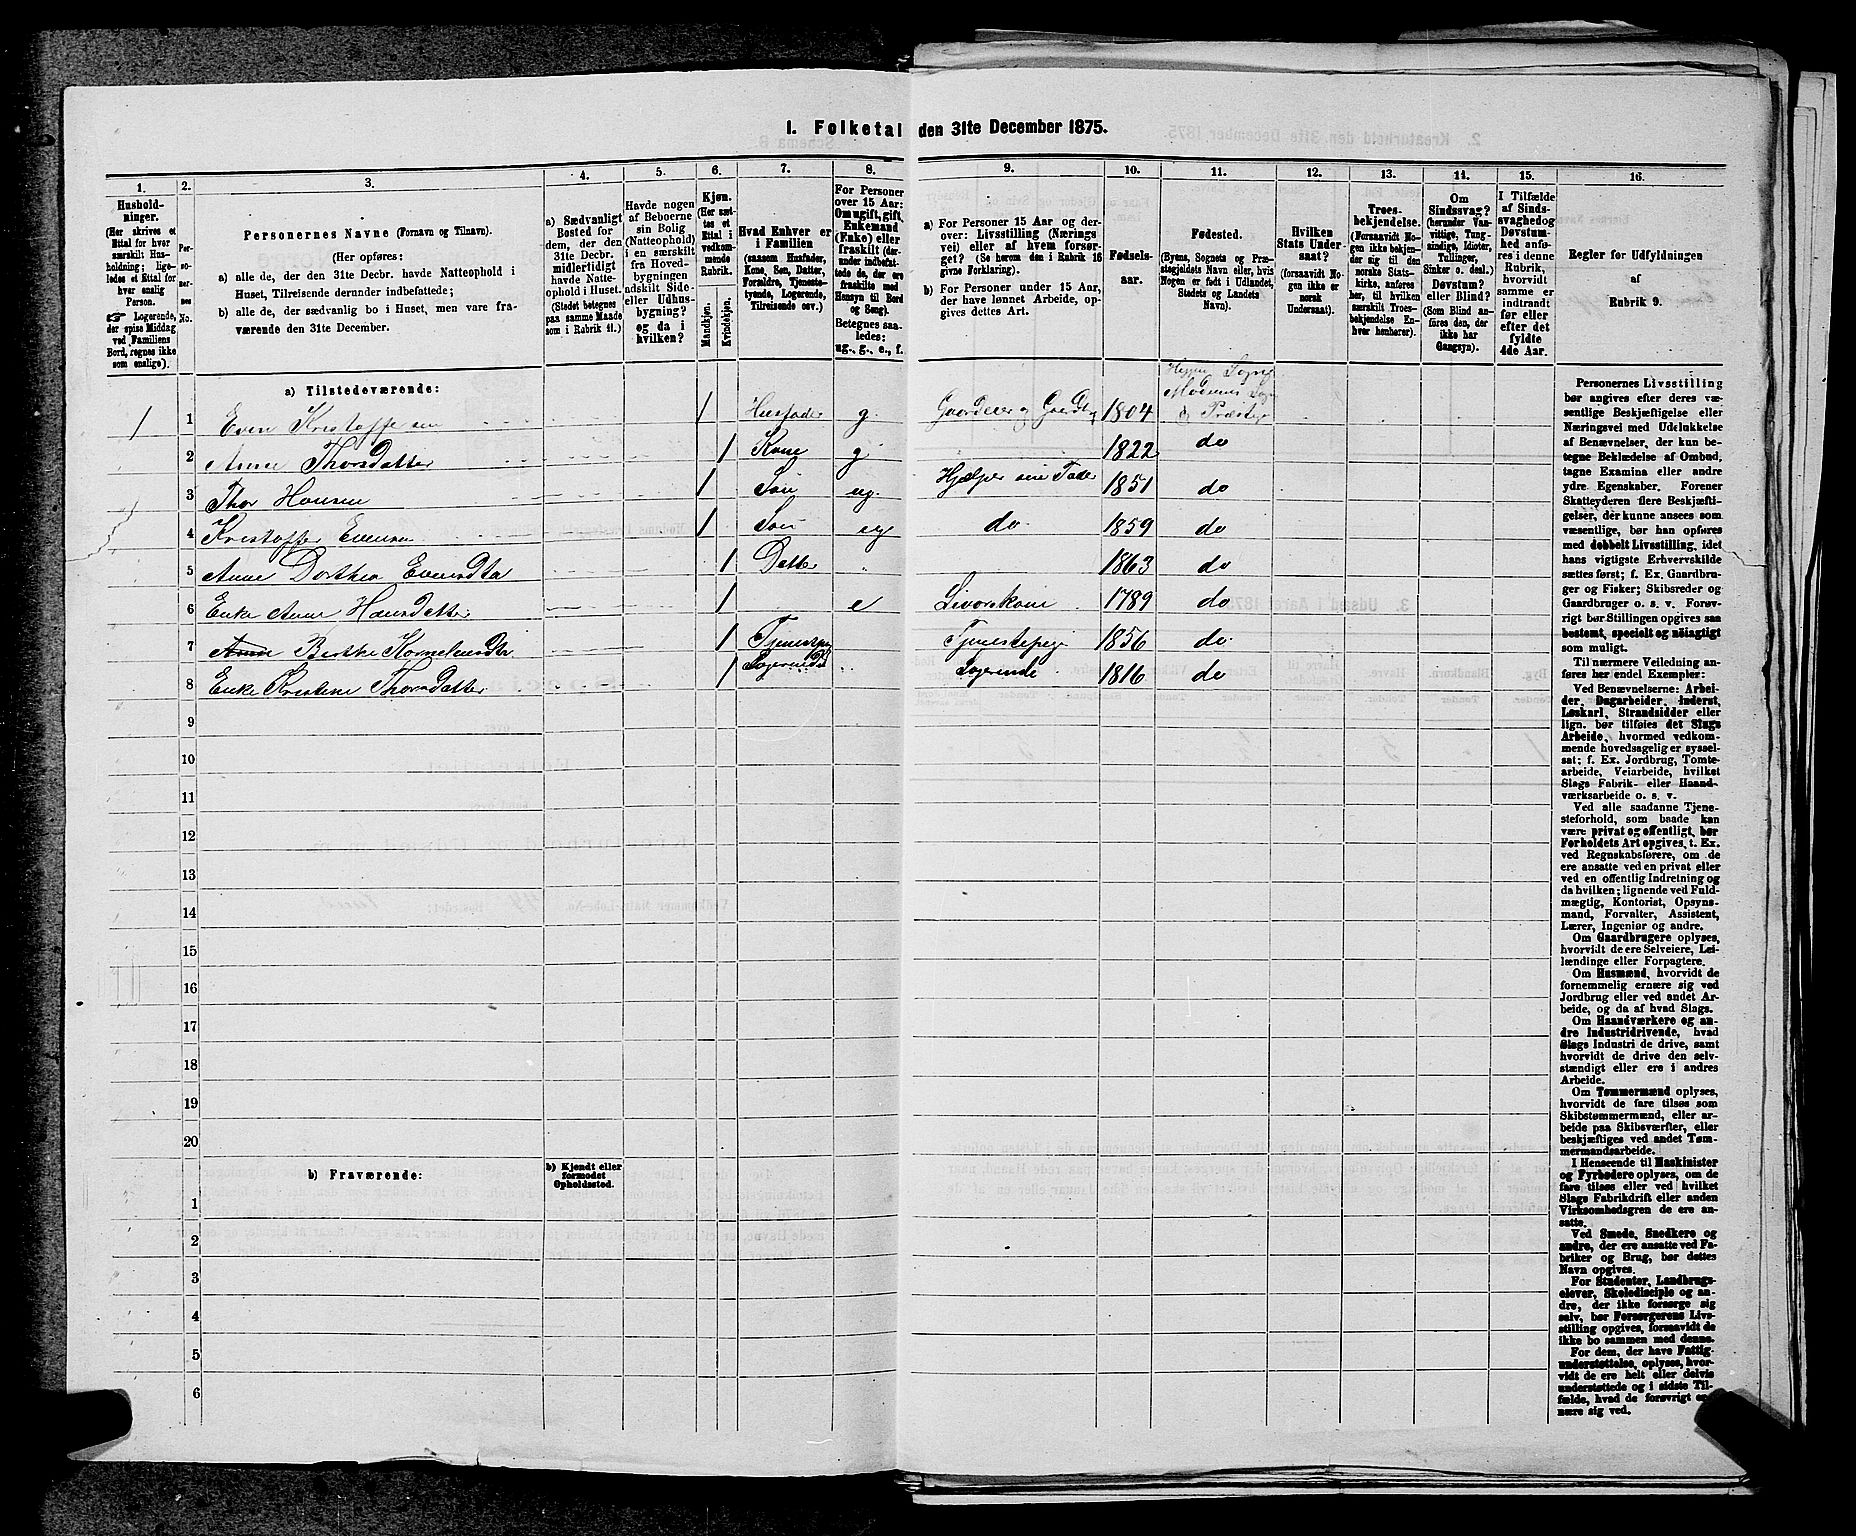 I. Folketal den 31te December 1875.
1.
2.
3.
4.
5.
6.
7.
8.
9.
10.
11.
12.
13.
14.
15.
16.
Hushold-
ninger.
(Her skrives et
Ettal for hver
særskilt Hus-
holdning; lige-
ledes et Ettal for
hver enslig
Person.
☞ Logerende,
der spise Middag
ved Familiens
Bord, regnes ikke
som enslige).
Per-
so-
ner-
nes
No.
Personernes Navne (Fornavn og Tilnavn).
(Her opføres:
a) alle de, der den 31te Decbr. havde Natteophold i
Huset, Tilreisende derunder indbefattede;
b) alle de, der sædvanlig bo i Huset, men vare fra-
værende den 31te December.
a) Sædvanligt
Bosted for
dem, der den
31te Decbr.
midlertidigt
havde Natte-
ophold i Huset.
(Stedet betegnes
paa samme Maade
som i Rubrik 11.)
Havde nogen
af Beboerne
sin Bolig
(Natteophold)
i en særskilt
fra Hoved-
bygningen
adskilt Side-
eller Udhus-
bygning?
og da i
hvilken?
Kjøn.
(Her sæt-
tes et
Ettal i
vedkom-
mende
Rubrik.
Mandkjøn.
Kvindekjøn.
Hvad Enhver er
i Familien
(saasom Husfader,
Kone, Søn, Datter,
Forældre, Tjeneste-
tyende, Logerende,
Tilreisende osv.)
For Personer
over 15 Aar:
Om ugift, gift,
Enkemand
(Enke) eller
fraskilt (der-
under indbefat-
tede de, der ere
fraskilte med
Hensyn til Bord
og Seng).
Betegnes saa-
ledes:
ug., g., e., f.
a) For Personer 15 Aar og der-
over: Livsstilling (Nærings-
vei) eller af hvem forsør-
get? (Se herom den i Rubrik 16
givne Forklaring).
b) For Personer under 15 Aar,
der have lønnet Arbeide, op-
gives dettes Art.
Fødsels-
aar.
Fødested.
(Byens, Sognets og Præ-
stegjeldets Navn eller, hvis
Nogen er født i Udlandet,
Stedets og Landets
Navn).
Hvilken
Stats Under-
saat?
(forsaavidt No-
gen ikke er
norsk
Undersaat).
Troes-
bekjendelse.
(Forsaavidt No-
gen ikke bekjen-
der sig til den
norske Stats-
kirke, anføres
her, til hvilken
særskilt Troes-
bekjendelse En-
hver henhører).
Om
Sindssvag?
(herunder Van-
vittige, Tung-
sindige, Idioter,
Tullinger,
Sinker o. desl.)
Døvstum?
eller Blind?
(Som Blind an-
føres den, der
ikke har
Gangsyn).
I Tilfælde
af Sinds-
svaghed og
Døvstum-
hed anfø-
res i denne
Rubrik,
hvorvidt
samme er
indtraadt
før eller
efter det
fyldte
4de Aar.
Regler for Udfyldningen
af
Rubrik 9.
a) Tilstedeværende:
1 1 Even Kristoffersen 1 Husfader g. 1804 Sogn
2 Anne Thorsdatter 1 Kone g 1822 do
3 Thor Hansen 1 Søn ug. Hjælper sin Fader 1851 do
4 Kristoffer Evensen 1 Søn ug do. 1859 do
5 Anne Dorthea Evensdtr 1 Datter 1863 do
6 Enke Anne Hansdatter 1 e 1789 do
7 Anne Berthe 1 1856 do
8 Enke Kristine Thorsdatter 1 Logerende 1816 do
9
10
11
12
13
14
15
16
17
18
19
20
b) Fraværende:
b) Kjendt eller
formodet
Opholdssted.
1
2
3
4
5
6
Personernes Livsstilling
bør angives efter deres væ-
sentlige Beskjæftigelse eller
Næringsvei med Udelukkelse
af Benævnelser, der kun be-
tegne Beklædelse af Ombud,
tagne Examina eller andre
ydre Egenskaber. Forener
Skatteyderen flere Beskjæfti-
gelser, der kunne ansees som
væsentlige, bør han opføres
med dobbelt Livsstilling, idet
hans vigtigste Erhvervskilde
sættes først; f. Ex. Gaardbru-
ger og Fisker; Skibsreder og
Gaardbruger o. s. v. Forøv-
rigt bør Stillingen opgives saa
bestemt, specielt og nøiagtigt
som muligt.
Til nærmere Veiledning an-
føres her endel Exempler:
Ved Benævnelserne: Arbei-
der, Dagarbeider, Inderst,
Løskarl, Strandsidder eller
lign. bør tilføies det Slags
Arbeide, hvormed vedkom-
mende hovedsagelig er syssel-
sat; f. Ex. Jordbrug, Tomte-
arbeide, Veiarbeide, hvilket
Slags Fabrik- eller Haand-
værksarbeide o. s. v.
Ved alle saadanne Tjene-
steforhold, som baade kan
være privat og offentligt, bør
Forholdets Art opgives, t. Ex.
ved Regnskabsførere, om de
ere ansatte ved en privat eller
ved en offentlig Indretning og
da hvilken; lignende ved Fuld-
mægtig, Kontorist, Opsyns-
mand, Forvalter, Assistent,
Lærer, Ingeniør og andre.
Om Gaardbrugere oplyses,
hvorvidt de ere Selveiere, Lei-
lændinge eller Forpagtere.
Om Husmænd, hvorvidt de
fornemmelig ernære sig ved
Jordbrug eller ved andet Ar-
beide, og da af hvad Slags.
Om Haandværkere og an-
dre Industridrivende, hvad
Slags Industri de drive, samt
hvorvidt de drive den selv-
stændigt eller ere i andres
Arbeide.
Om Tømmermænd oplyses,
hvorvidt de fare tilsøs som
Skibstømmermænd, eller ar-
beide paa Skibsværfter, eller
beskjæftiges ved andet Tøm-
mermandsarbeide.
I Henseende til Maskinister
og Fyrbødere oplyses, om de
fare tilsøs eller ved hvilket
Slags Fabrikdrift eller anden
Virksomhedsgren de ere an-
satte.
Ved Smede, Snedkere og
andre, der ere ansatte ved Fa-
briker og Brug, bør dettes
Navn opgives.
For Studenter, Landbrugs-
elever, Skoledisciple og an-
dre, der ikke forsørge sig
selv, bør Forsørgerens Livs-
stilling opgives, forsaavidt de
ikke bo sammen med denne.
For dem, der have Fattig-
understøttelse, oplyses, hvor-
vidt de ere helt eller delvis
understøttede og i sidste Til-
fælde, hvad de forøvrigt er-
nære sig ved.